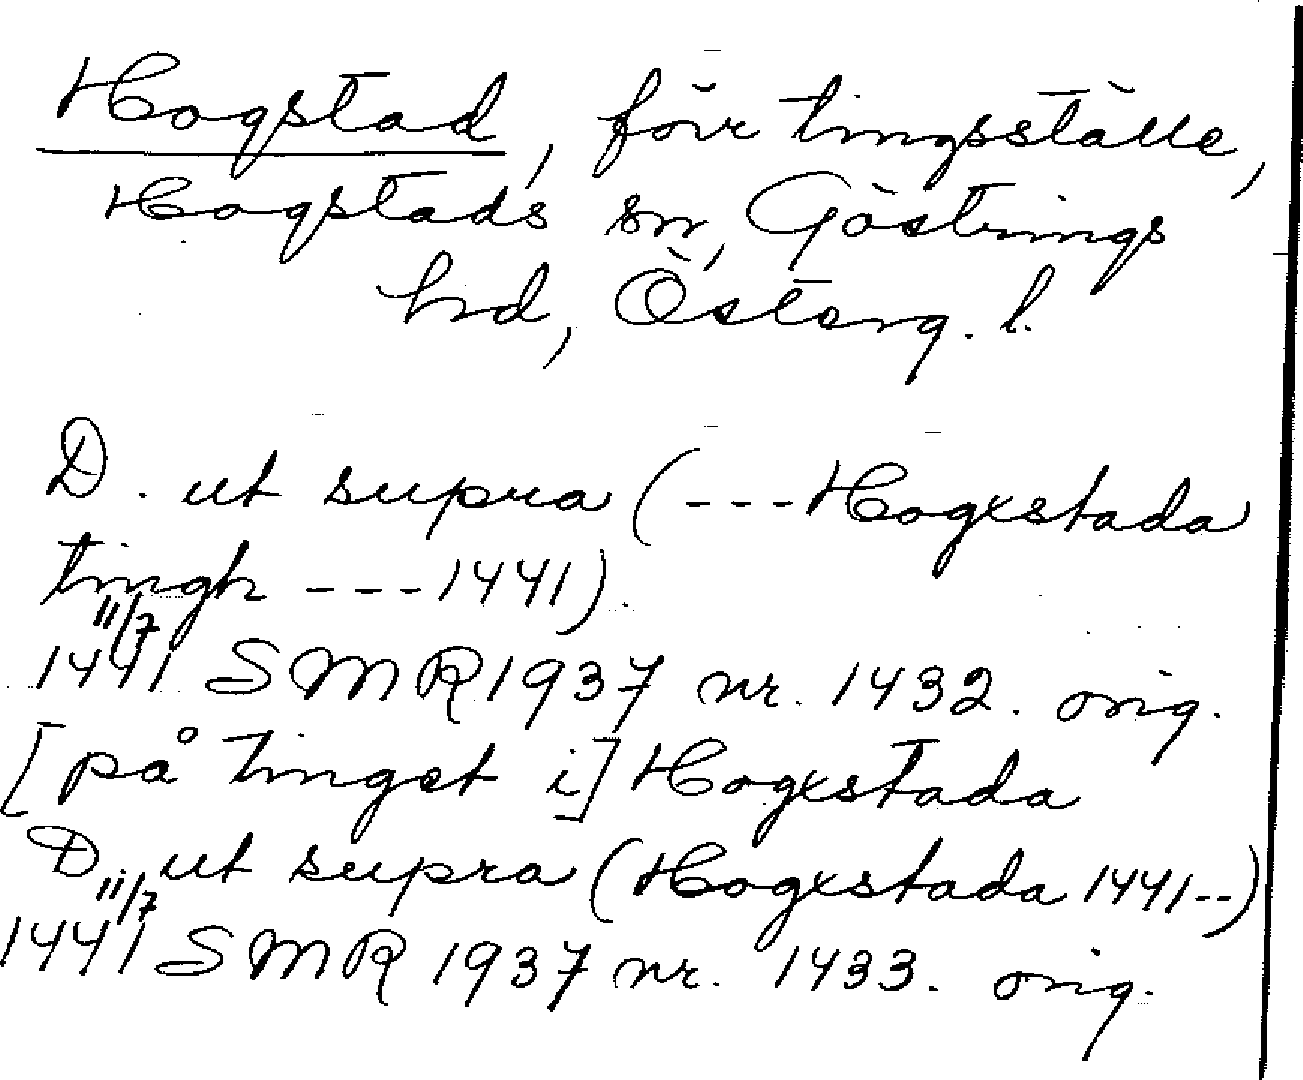 Hogstad, förr tingsställe,
Hogstads sn, Göstrings
hd, Österg. l.
D. ut supra (--- Hogxstada
tingh --- 1441).
11/7
1441 SMR 1937 nr. 1432. orig.
[på tinget i] Hogxstada
D. ut supra (Hogxstada 1441--)
11/7
1441 SMR 1937 nr. 1433. orig.